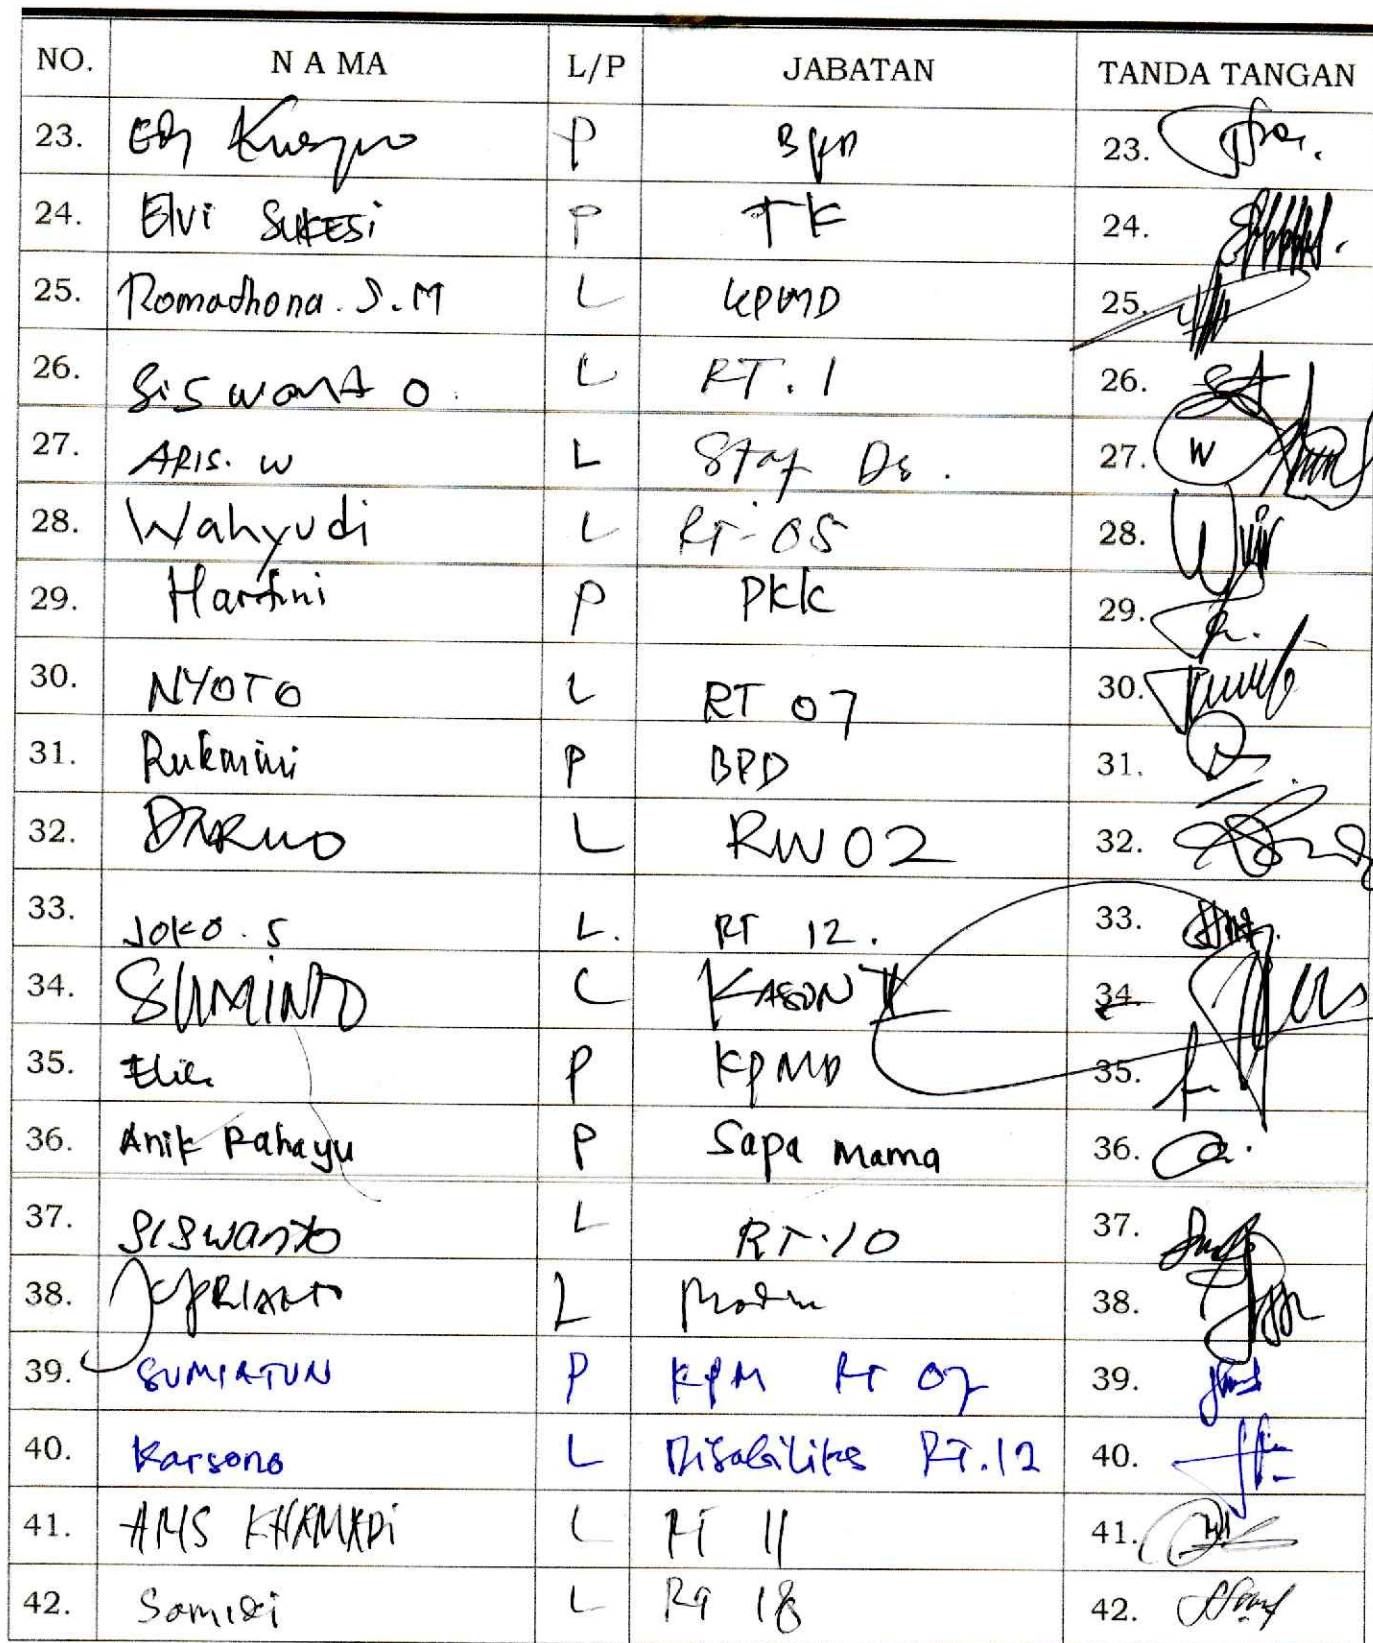 NO. N A M A L/P JABATAN TANDA TANGAN
23. P 23.
24. Elvi SUKESi P TK 24.
25. Romadhona. S.M L KPMD 25.
26. SiSwanto L RT. 1 26.
27. ARIS. W L Staf Ds. 27. W
28. Wahyudi L RT-05 28.
29. Hartini P PKK 29.
30. NYOTO L RT 07 30.
31. Rukmini P BPD 31.
32. L RW 02 32.
33. JOKO. S L. RT 12. 33.
34. SUMINTO L KASUN II 34.
35. P KPMD 35.
36. Anik Rahayu P Sapa Mama 36.
37. SISWanto L RT.10 37.
38. L Modin 38.
39. SUMIATUN P KPM RT 07 39.
40. Karsono L Disabilitas RT.12 40.
41. AMS KHAMADi L RT 11 41.
42. L RT 18 42.